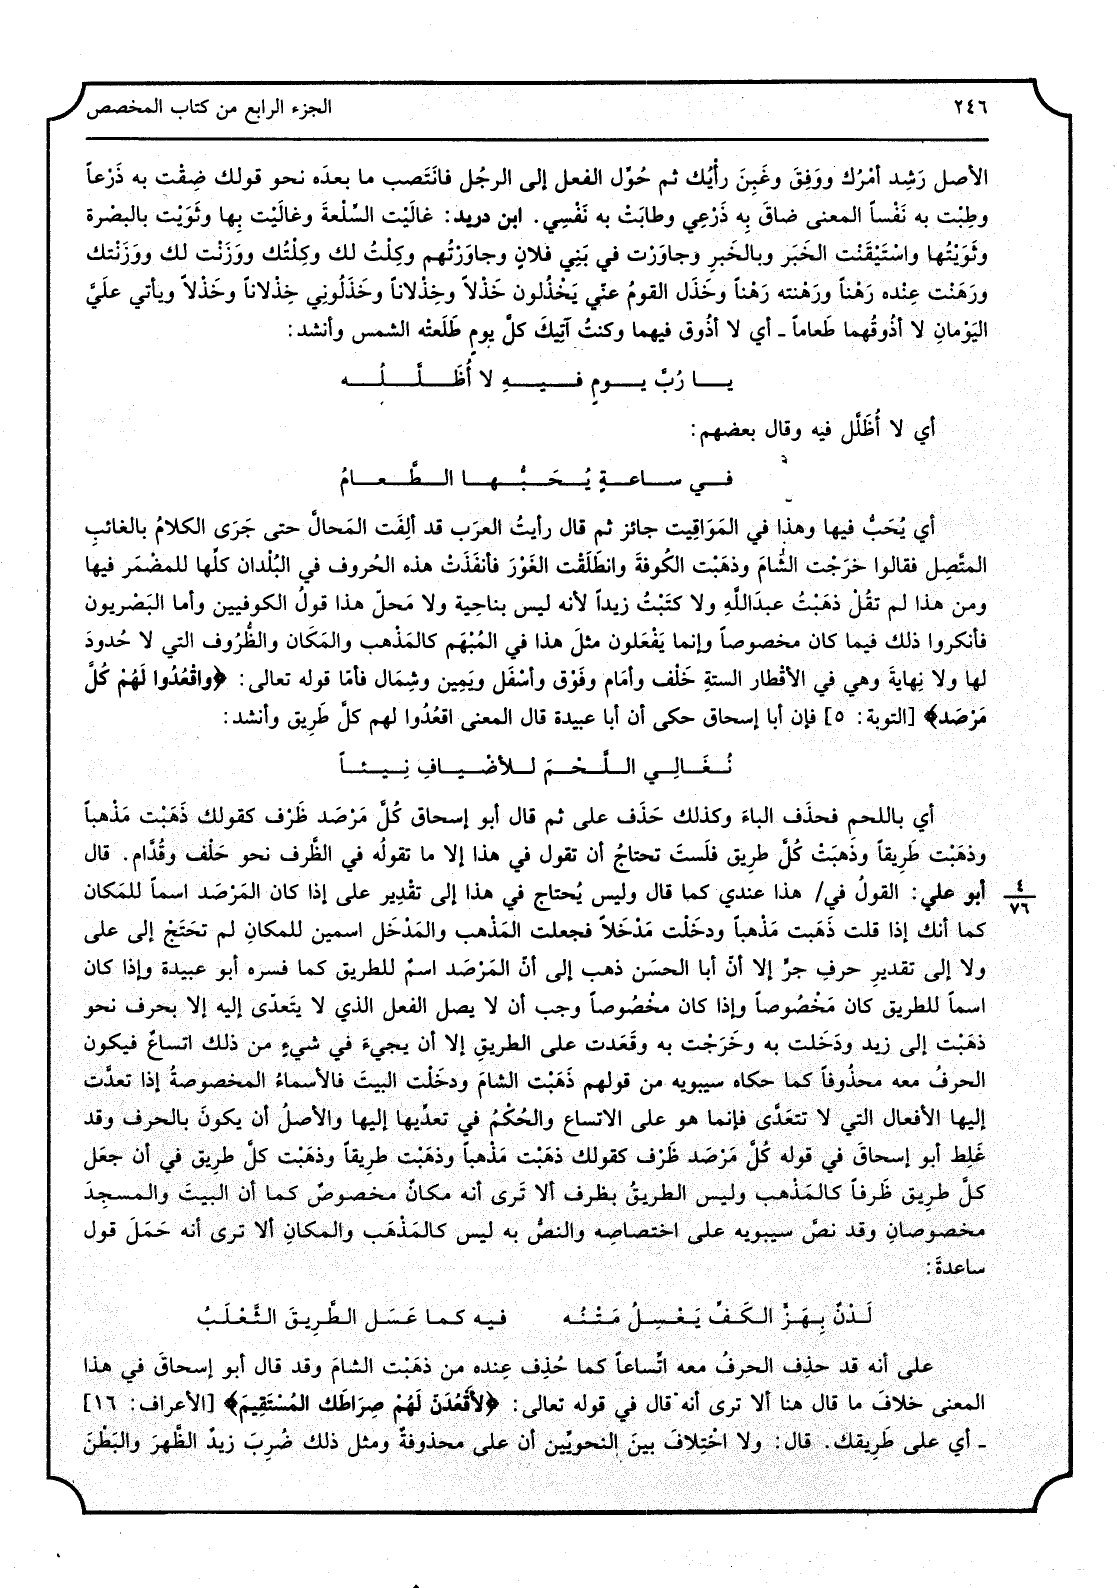 ٢٤٦
الجزء الرابع من كتاب المخصص
الأصل رَشِد أمْرُك ووَفِقَ وغَبِنَ رأيُك ثم حُوِّل الفعل إلى الرجُل فانْتَصب ما بعده نحو قولك ضِقْت به ذَرْعاً
وطِبْت به نَفْساً المعنى ضاقَ بِه ذَرْعِي وطابَتْ به نَفْسِي. ابن دريد: غالَيْت السِّلْعةَ وغالَيْت بِها وثَوَيْت بالبصْرة
وثَوَيْتُها واسْتَيْقَنْت الخَبَر وبالخَبرِ وجاوَرْت في بَنِي فلان وجاوَرْتُهم وكِلْتُ لك وكِلْتُك ووَزَنْت لك ووَزَنْتك
ورَهَنْت عِنْده رَهْناً ورَهَنْته رَهْناً وخَذَل القومُ عنّي يَخْذُلون خَذْلاً وخِذْلاناً وخَذَلُوني خِذْلاناً وخَذْلاً ويأتي علَيَّ
اليَوْمانِ لا أذُوقُهما طَعاماً ـ أي لا أذُوق فيهما وكنتُ آتِيكَ كلَّ يومٍ طَلَعتْه الشمس وأنشد:
يـا رُبَّ يـومٍ فـيـهِ لا أُظَـلَّـلُـه
أي لا أُظَلَّل فيه وقال بعضهم:
فـي سـاعـةٍ يُـحَـبُّـهـا الـطَّـعـامُ
أي يُحَبُّ فيها وهذا في المَوَاقِيت جائز ثم قال رأيتُ العرَب قد ألِفَت المَحالَّ حتى جَرَى الكلامُ بالغائبِ
المتَّصِل فقالوا خرَجْت الشَّامَ وذهَبْت الكُوفةَ وانطَلَقْت الغَوْرَ فأنفَذَتْ هذه الحُروف في البُلْدان كلِّها للمضْمَر فيها
ومن هذا لم تقُلْ ذهَبْتُ عبدَاللَّهِ ولا كتَبْتُ زيداً لأنه ليس بناحِية ولا مَحلّ هذا قولُ الكوفيين وأما البَصْريون
فأنكروا ذلك فيما كان مخصوصاً وإنما يَفْعَلون مثلَ هذا في المُبْهَم كالمَذْهب والمَكَان والظُّرُوف التي لا حُدودَ
لها ولا نِهايةَ وهي في الأقْطار الستةِ خَلْف وأمَام وفَوْق وأسْفَل ويَمِين وشِمَال فأمّا قوله تعالى: ﴿واقْعُدُوا لَهُمْ كُلَّ
مَرْصَد﴾ [التوبة: ٥] فإن أبا إسحاق حكى أن أبا عبيدة قال المعنى اقعُدُوا لهم كلَّ طَرِيق وأنشد:
نُـغَـالِـي الـلَّـحْـمَ لـلأضْـيـافِ نِـيـئـاً
أي باللحم فحذَف الباءَ وكذلك حَذَف على ثم قال أبو إسحاق كُلَّ مَرْصَد ظَرْف كقولك ذَهَبْت مَذْهباً
وذهَبْت طَرِيقاً وذَهَبَتْ كُلَّ طريق فلَستَ تحتاجُ أن تقول في هذا إلا ما تقولُه في الظَّرف نحو خَلْف وقُدَّام. قال
أبو علي: القولُ في/ هذا عندي كما قال وليس يُحتاج في هذا إلى تقْدِير على إذا كان المَرْصَد اسماً للمَكان
٤
٧٦
كما أنك إذا قلت ذَهَبت مَذْهباً ودخَلْت مَدْخَلاً فجعلت المَذْهب والمَدْخَل اسمين للمكانِ لم تحْتَجْ إلى على
ولا إلى تقديرِ حرفِ جرٍّ إلا أنّ أبا الحسَن ذهب إلى أنّ المَرْصَد اسمٌ للطريق كما فسره أبو عبيدة وإذا كان
اسماً للطريق كان مَخْصُوصاً وإذا كان مخْصُوصاً وجب أن لا يصل الفعل الذي لا يتَعدّى إليه إلا بحرف نحو
ذهَبْت إلى زيد ودَخَلت به وخَرَجْت به وقَعَدت على الطريقِ إلا أن يجيءَ في شيءٍ من ذلك اتساعٌ فيكون
الحرفُ معه محذُوفاً كما حكاه سيبويه من قولهم ذَهَبْت الشامَ ودخَلْت البيتَ فالأسماءُ المخصوصةُ إذا تعدَّت
إليها الأفعال التي لا تتعَدَّى فإنما هو على الاتساع والحُكْمُ في تعدِّيها إليها والأصلُ أن يكونَ بالحرف وقد
غَلِط أبو إسحاقَ في قوله كُلَّ مَرْصَد ظَرْف كقولك ذهَبْت مَذْهباً وذهَبْت طرِيقاً وذهَبْت كلَّ طريق في أن جعَل
كلَّ طريق ظَرفاً كالمَذْهب وليس الطريقُ بظرف ألا تَرى أنه مكانٌ مخصوصٌ كما أن البيتَ والمسجِدَ
مخصوصانِ وقد نصَّ سيبويه على اختصاصِه والنصُّ به ليس كالمَذْهَب والمكانِ ألا ترى أنه حَمَلَ قول
ساعدةَ:
لَـدْنٌ بِـهَـزِّ الـكَـفِّ يَـعْـسِـلُ مَـتْـنُـه فـيـه كـمـا عَـسَـلَ الـطَّـرِيقَ الـثَّـعْـلَـبُ
على أنه قد حذِف الحرفُ معه اتِّساعاً كما حُذِف عِنده من ذهَبْت الشامَ وقد قال أبو إسحاقَ في هذا
المعنى خلافَ ما قال هنا ألا ترى أنه قال في قوله تعالى: ﴿لأَقْعُدَنَّ لَهُمْ صِرَاطَك المُسْتَقِيمَ﴾ [الأعراف: ١٦]
ـ أي على طَرِيقك. قال: ولا اخْتِلافَ بينَ النحويِّين أن على محذوفةٌ ومثل ذلك ضُرِبَ زيدٌ الظَّهرَ والبَطْنَ